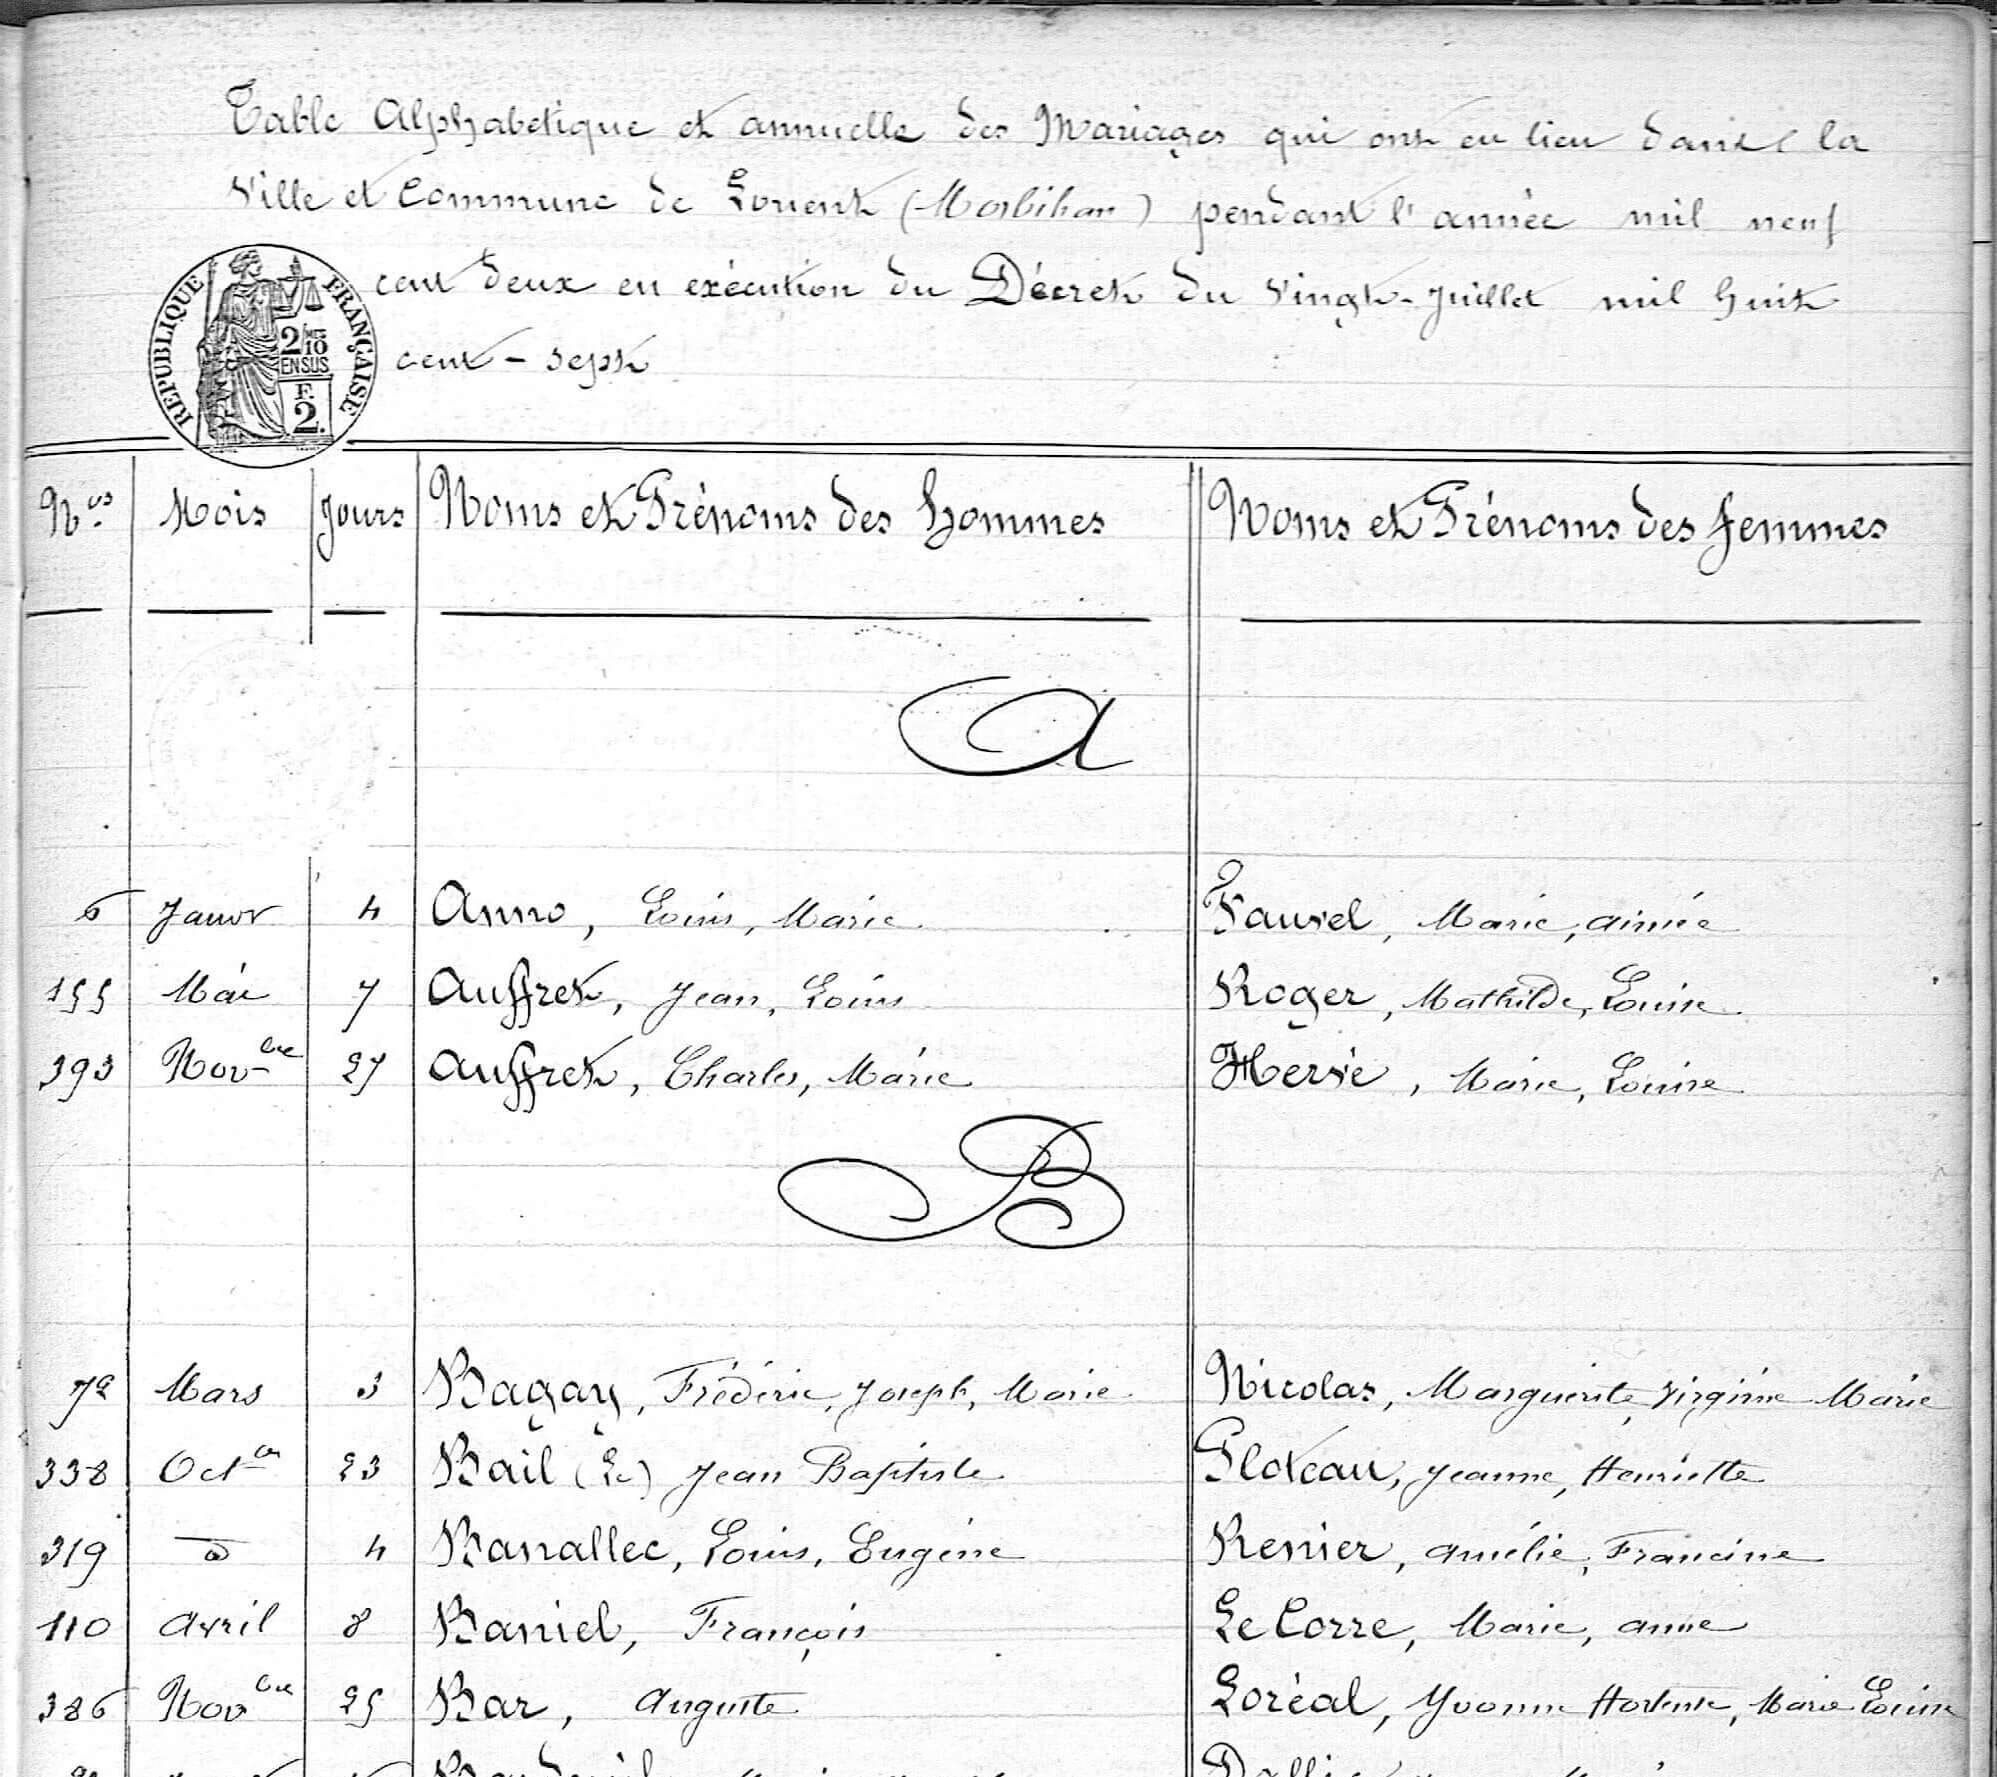 Table Alphabetique et annuelle des Mariages qui ont eu lieu dans la
Ville et Commune de Lorient (Morbihan) pendant l'année mil neuf
cent deux en exécution du Décret du Vingt-Juillet mil huit
cent - sept
REPUBLIQUE FRANÇAISE
2/10
EN SUS
F.
2.
Nos Mois Jours Noms et Prénoms des hommes Noms et Prénoms des femmes
A
6 Janvr 4 Anno, Louis, Marie Fauvel, Marie, aimée
155 Mai 7 Auffret, Jean, Louis Roger, Mathilde, Louise
393 Novbre 27 Auffret, Charles, Marie Hervé, Marie, Louise
B
72 Mars 3 Bagay, Fréderic, Joseph, Marie Nicolas, Marguerite, Virginie Marie
338 Octbre 23 Bail (Le) Jean Baptiste Ploteau, Jeanne, Henriette
319 do 4 Banallec, Louis, Eugène Renier, amélie, Francine
110 Avril 8 Baniel, François Le Corre, Marie, anne
386 Novbre 25 Bar, Auguste Loréal, Yvonne Hortense, Marie Louise